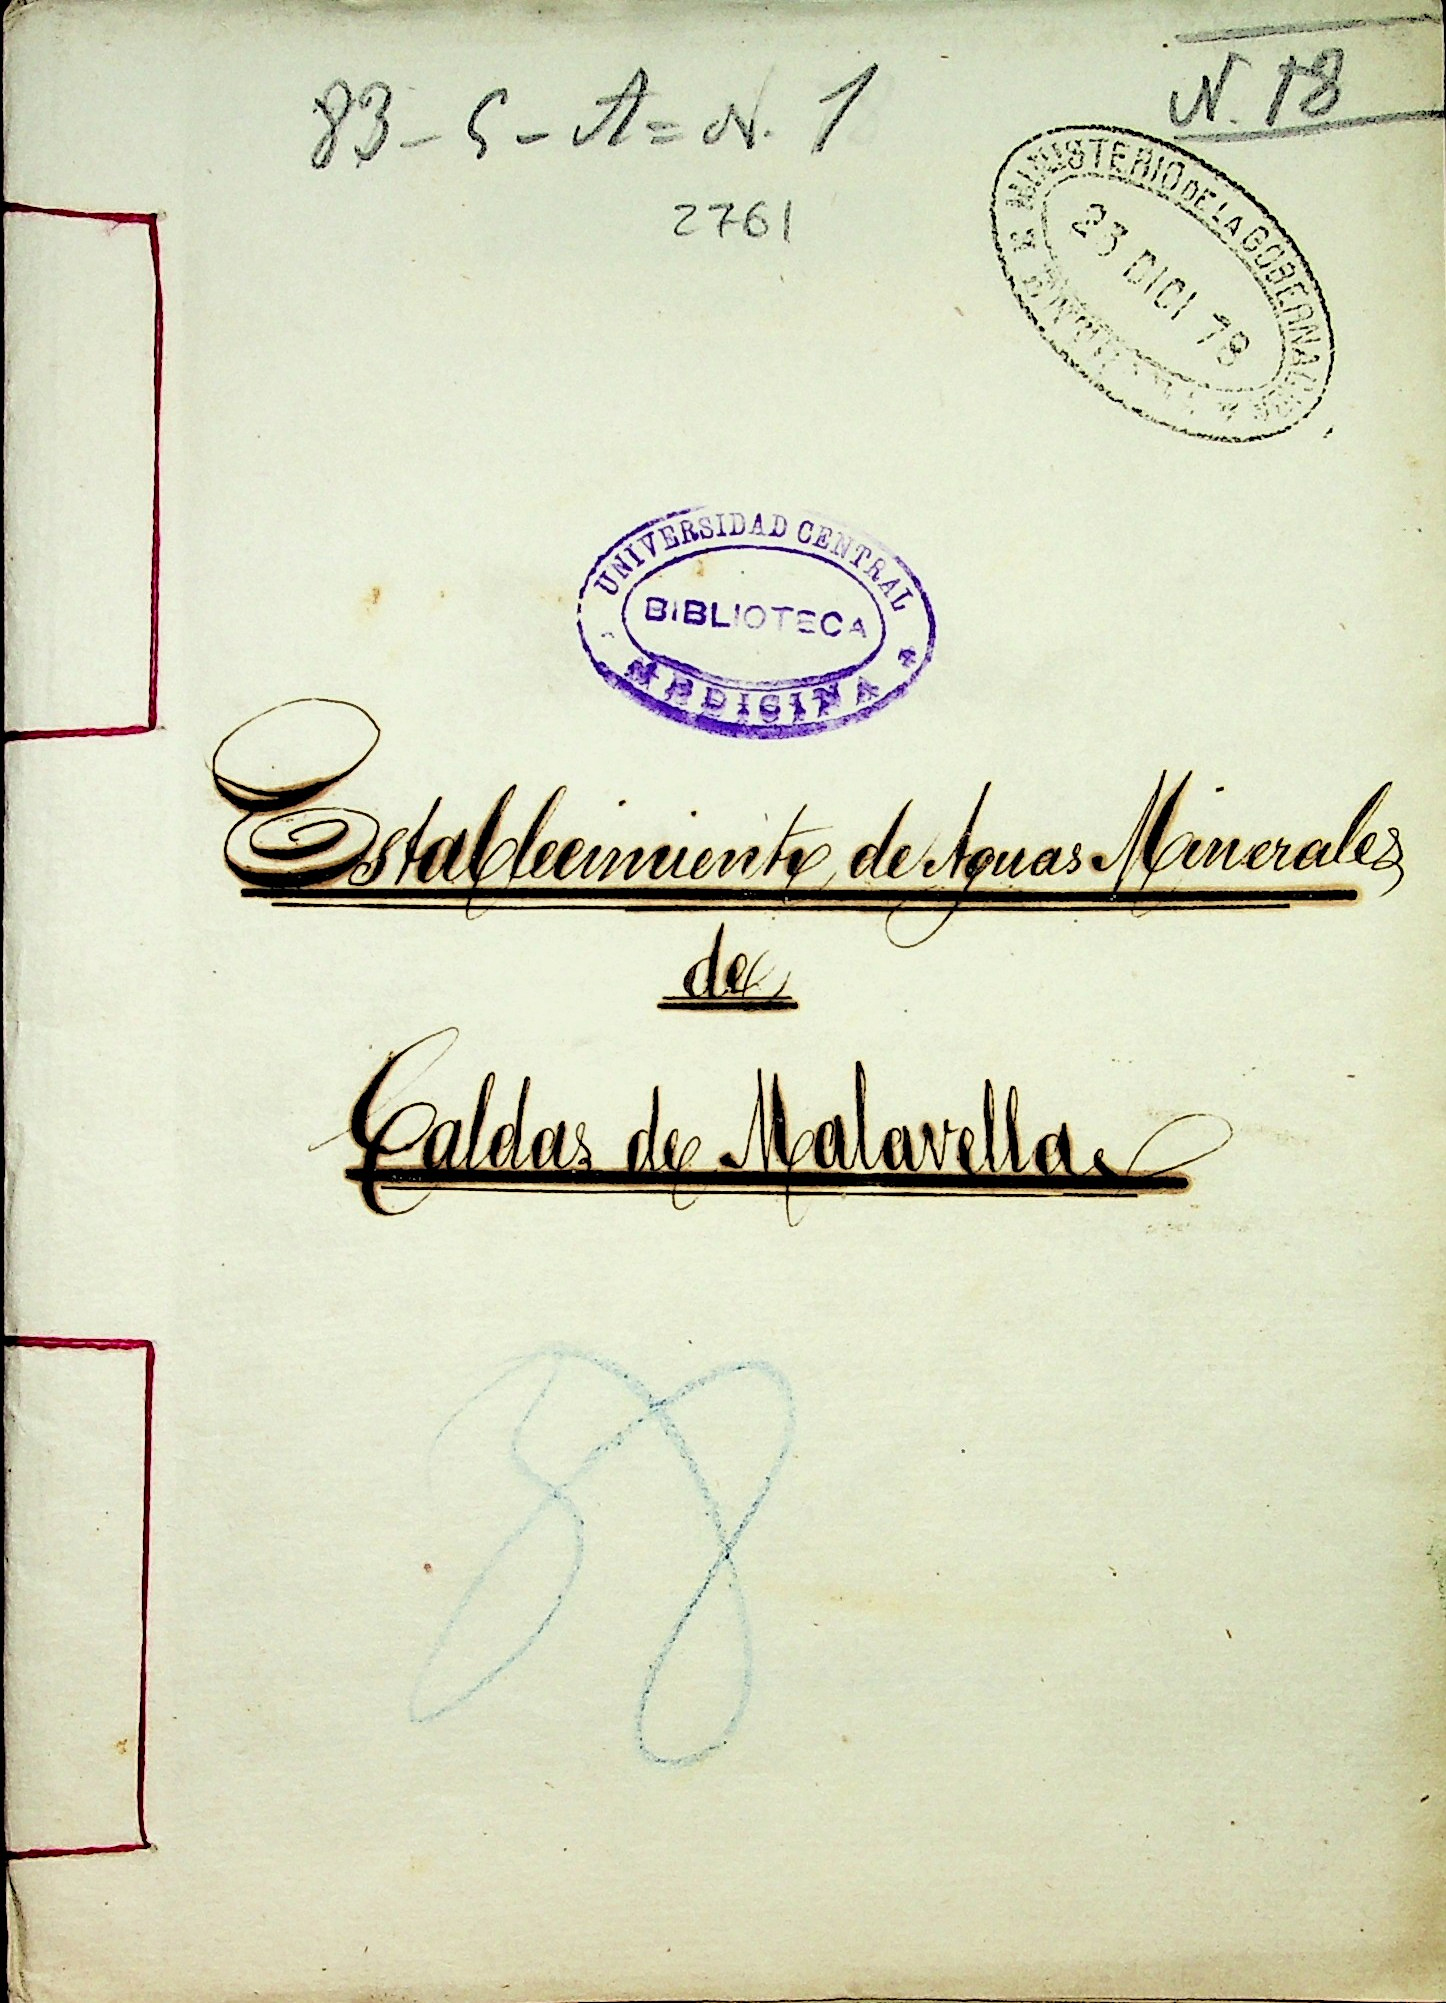 N. 18
83 - 5 - A = N. 1
2761
MINISTERIO DE LA GOBERNACION
23 DICI 78
ENTRADA
UNIVERSIDAD CENTRAL
BIBLIOTECA
MEDICINA
Establecimiento de Aguas Minerales
de
Caldas de Malavella
88